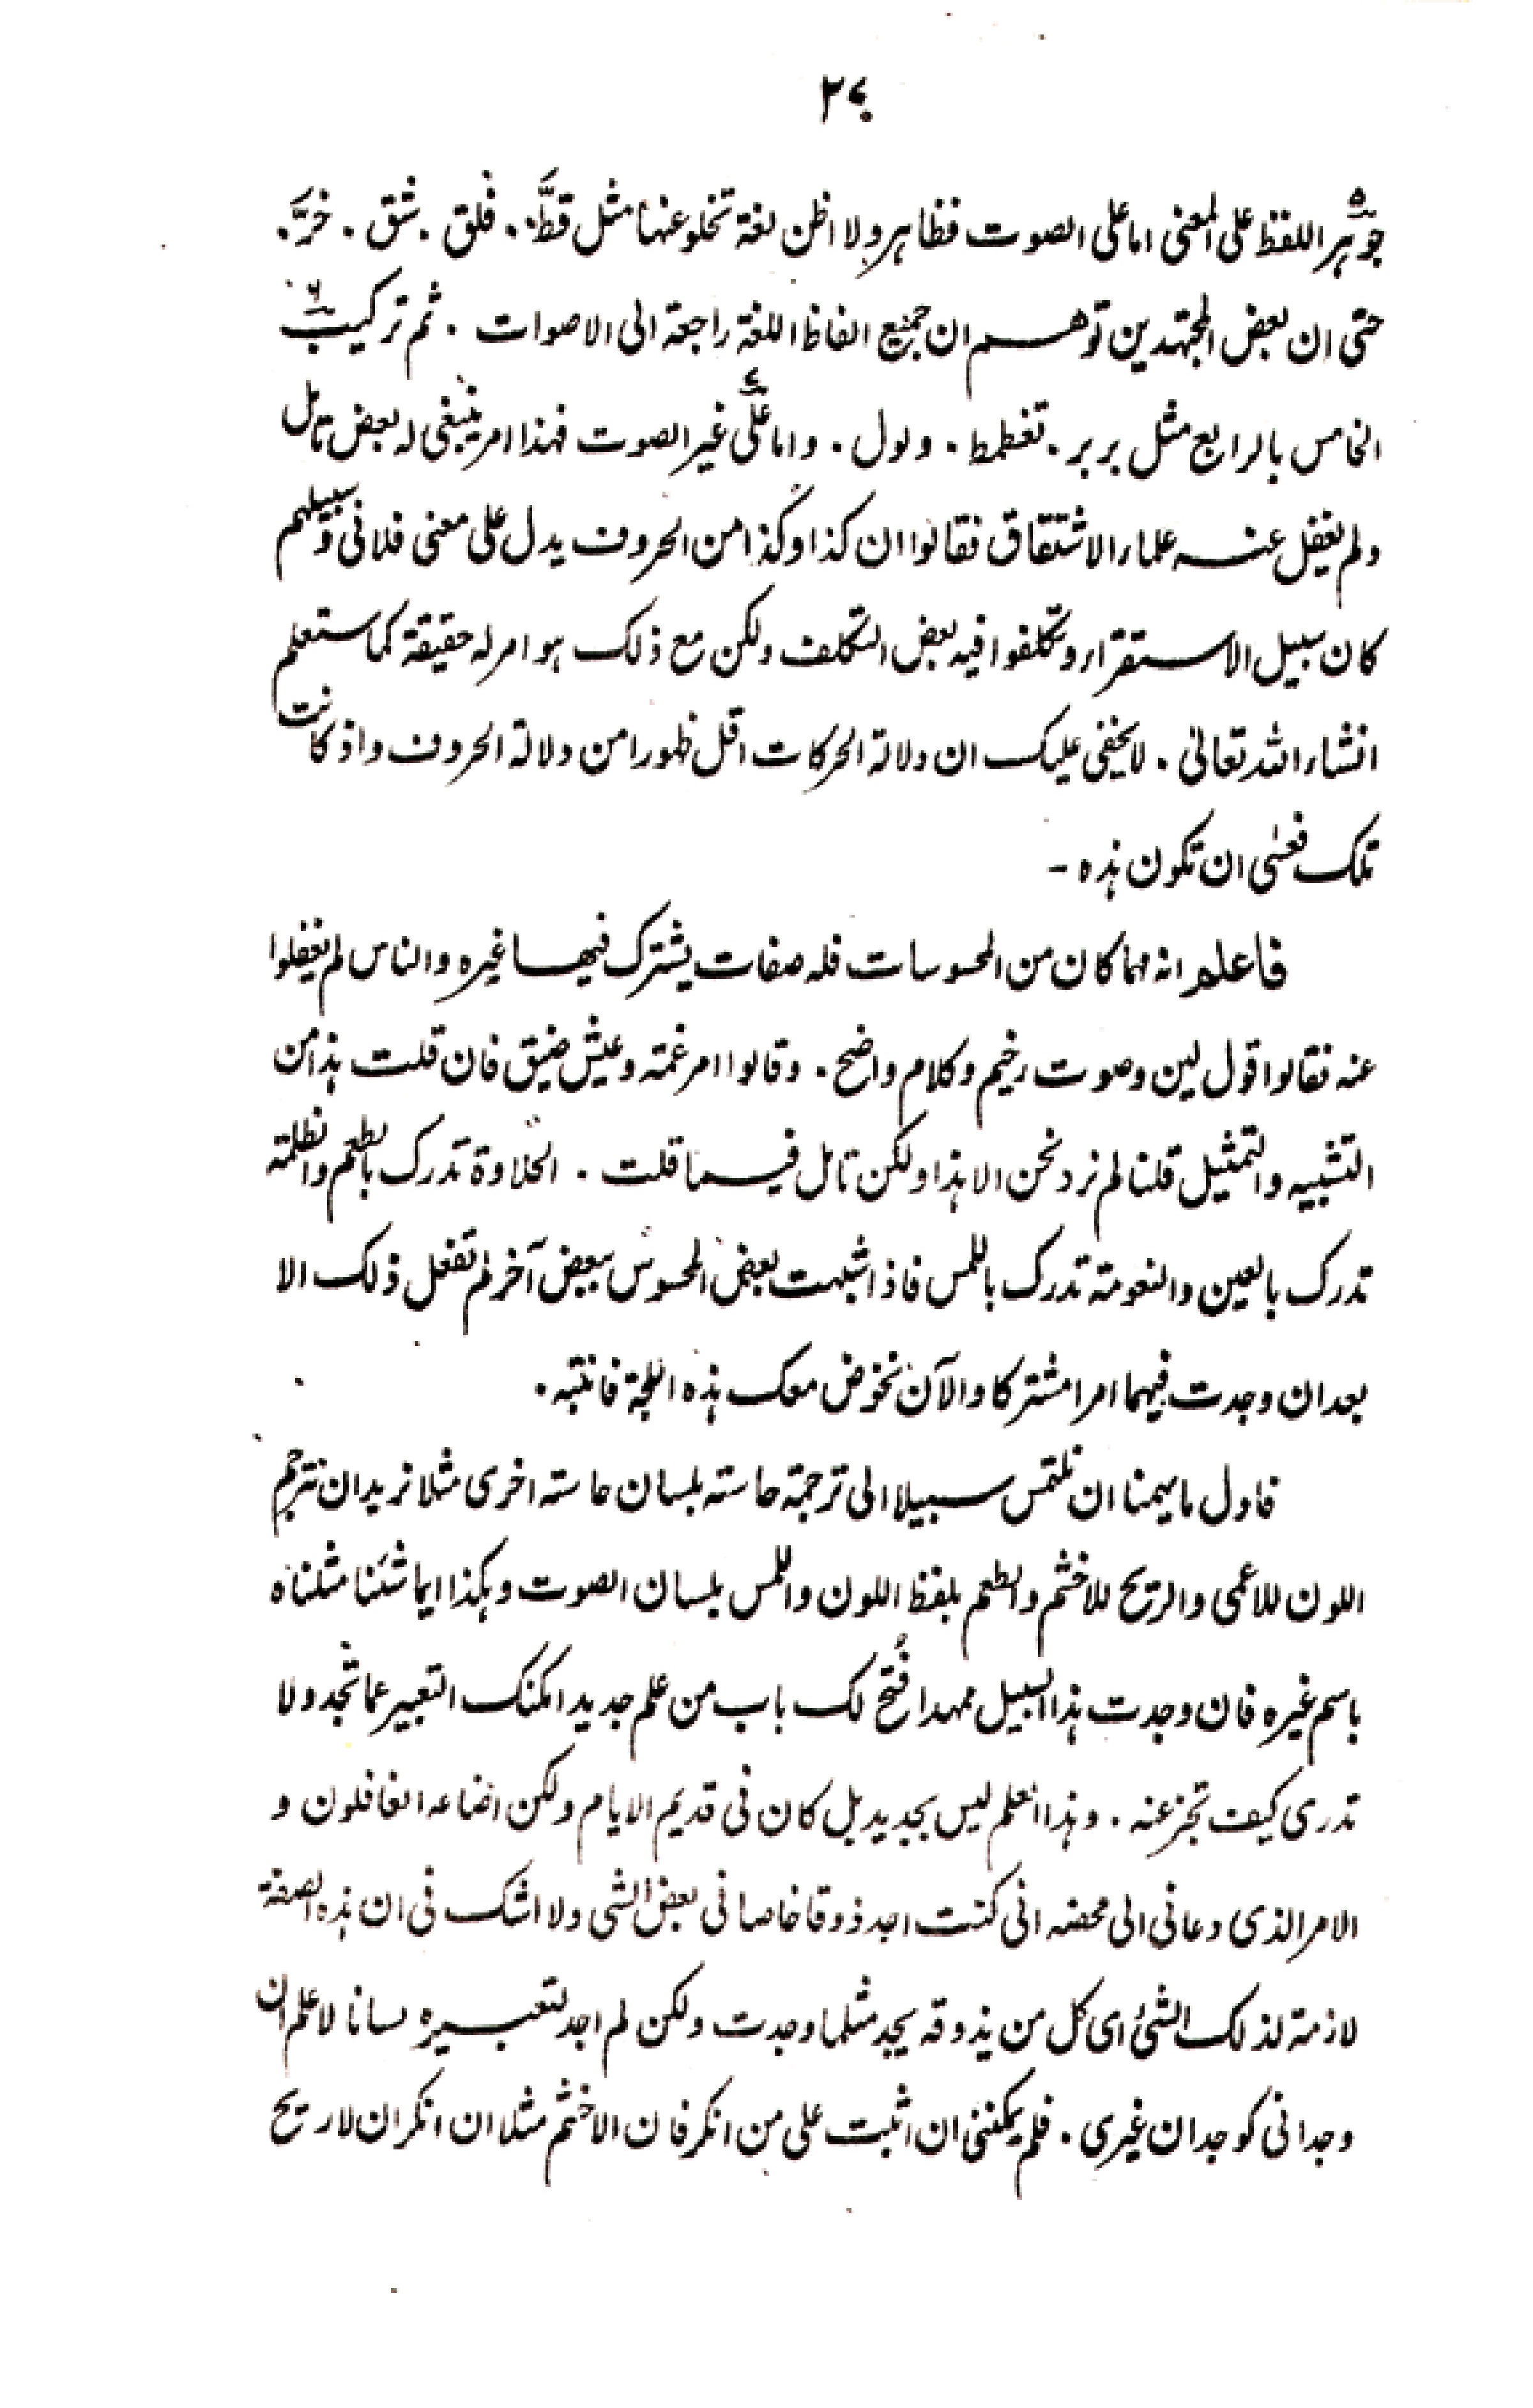 ٢٧
جوهر اللفظ على المعنى اما على الصوت فظاهر ولا اظن لغة تخلو عنها مثل قطَّ . فلق . شق . خرَّ .
حتى ان بعض المجتهدين توهم ان جميع الفاظ اللغة راجعة الى الاصوات . ثم تركيب
الخامس بالرابع مثل بربر . تغطمط . ولول . واما على غير الصوت فهذا امر ينبغي له بعض تامل
ولم يغفل عنه علماء الاشتقاق فقالوا ان كذا وكذا من الحروف يدل على معنى فلانى وسبيلهم
كان سبيل الاستقراء وتكلفوا فيه بعض التكلف ولكن مع ذلك هو امر له حقيقة كما ستعلم
انشاء الله تعالى . لا يخفى عليك ان دلالة الحركات اقل ظهورا من دلالة الحروف واذ كانت
تلك فعسى ان تكون هذه -
فاعلم انه مهما كان من المحسوسات فله صفات يشترك فيها غيره والناس لم يغفلوا
عنه فقالوا قول لين وصوت رخيم وكلام واضح . وقالوا امر غمة وعيش ضيق فان قلت هذا من
التشبيه والتمثيل قلنا لم نرد نحن الا هذا ولكن تامل فيما قلت . الحلاوة تدرك بالطعم والظلمة
تدرك بالعين والنعومة تدرك باللمس فاذا شبهت بعض المحسوس ببعض آخر لم تفعل ذلك الا
بعد ان وجدت فيهما امرا مشتركا والآن نخوض معك هذه اللجة فانتبه .
فاول ما يهمنا ان نلتمس سبيلا الى ترجمة حاسة بلسان حاسة اخرى مثلا نريد ان نترجم
اللون للاعمى والريح للاخشم والطعم بلفظ اللون واللمس بلسان الصوت وهكذا ايما شئنا مثلناه
باسم غيره فان وجدت هذا السبيل ممهدا فُتح لك باب من علم جديد امكنك التعبير عما تجد ولا
تدرى كيف تخبر عنه . وهذا العلم ليس بجديد بل كان فى قديم الايام ولكن اضاعه الغافلون و
الامر الذى دعانى الى محضه انى كنت اجد ذوقا خاصا فى بعض الشى ولا اشك فى ان هذه الصفة
لازمة لذلك الشئ اى كل من يذوقه يجد مثلما وجدت ولكن لم اجد لتعبيره لسانا لاعلم ان
وجدانى كوجدان غيرى . فلم يمكننى ان اثبت على من انكر فان الاخشم مثلا ان انكر ان لا ريح